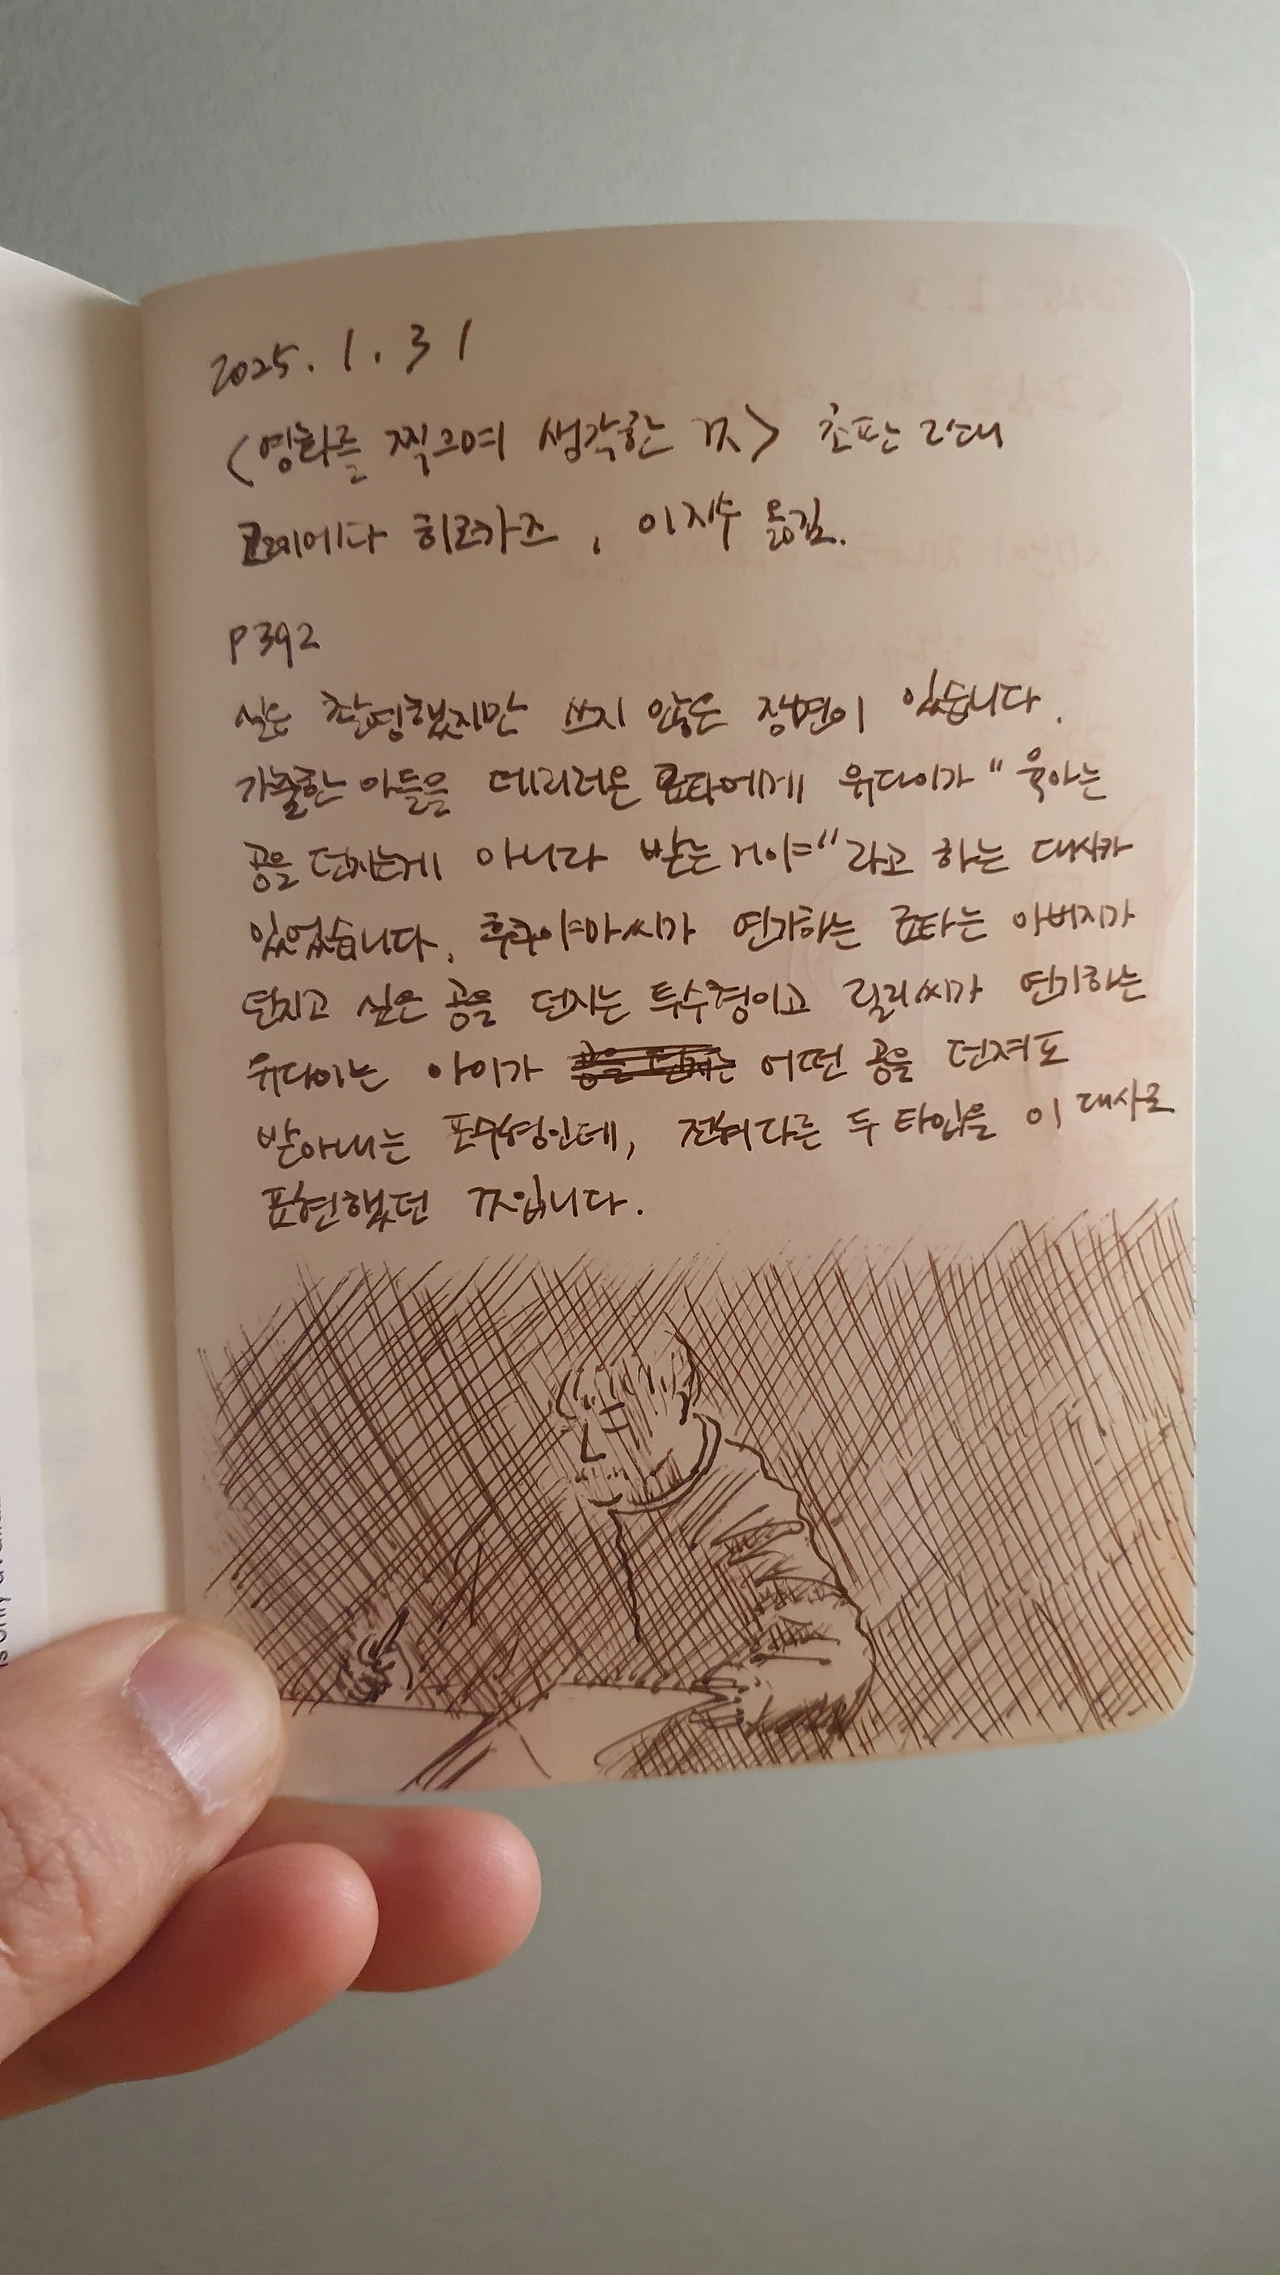 2025. 1. 31
<영화를 찍으며 생각한 것> 초판 2쇄
코레에다 히로카즈, 이지수 옮김.
P392
실은 촬영했지만 쓰지 않은 장면이 있습니다.
가출한 아들을 데리러온 료타에게 유다이가 "육아는
공을 던지는게 아니다 받는 거야"라고 하는 대사가
있었습니다. 후쿠야마씨가 연기하는 료타는 아버지가
던지고 싶은 공을 던지는 투수형이고 릴리씨가 연기하는
유다이는 아이가 어떤 공을 던져도
받아내는 포수형인데, 전혀다른 두 타입을 이 대사로
표현했던 것입니다.